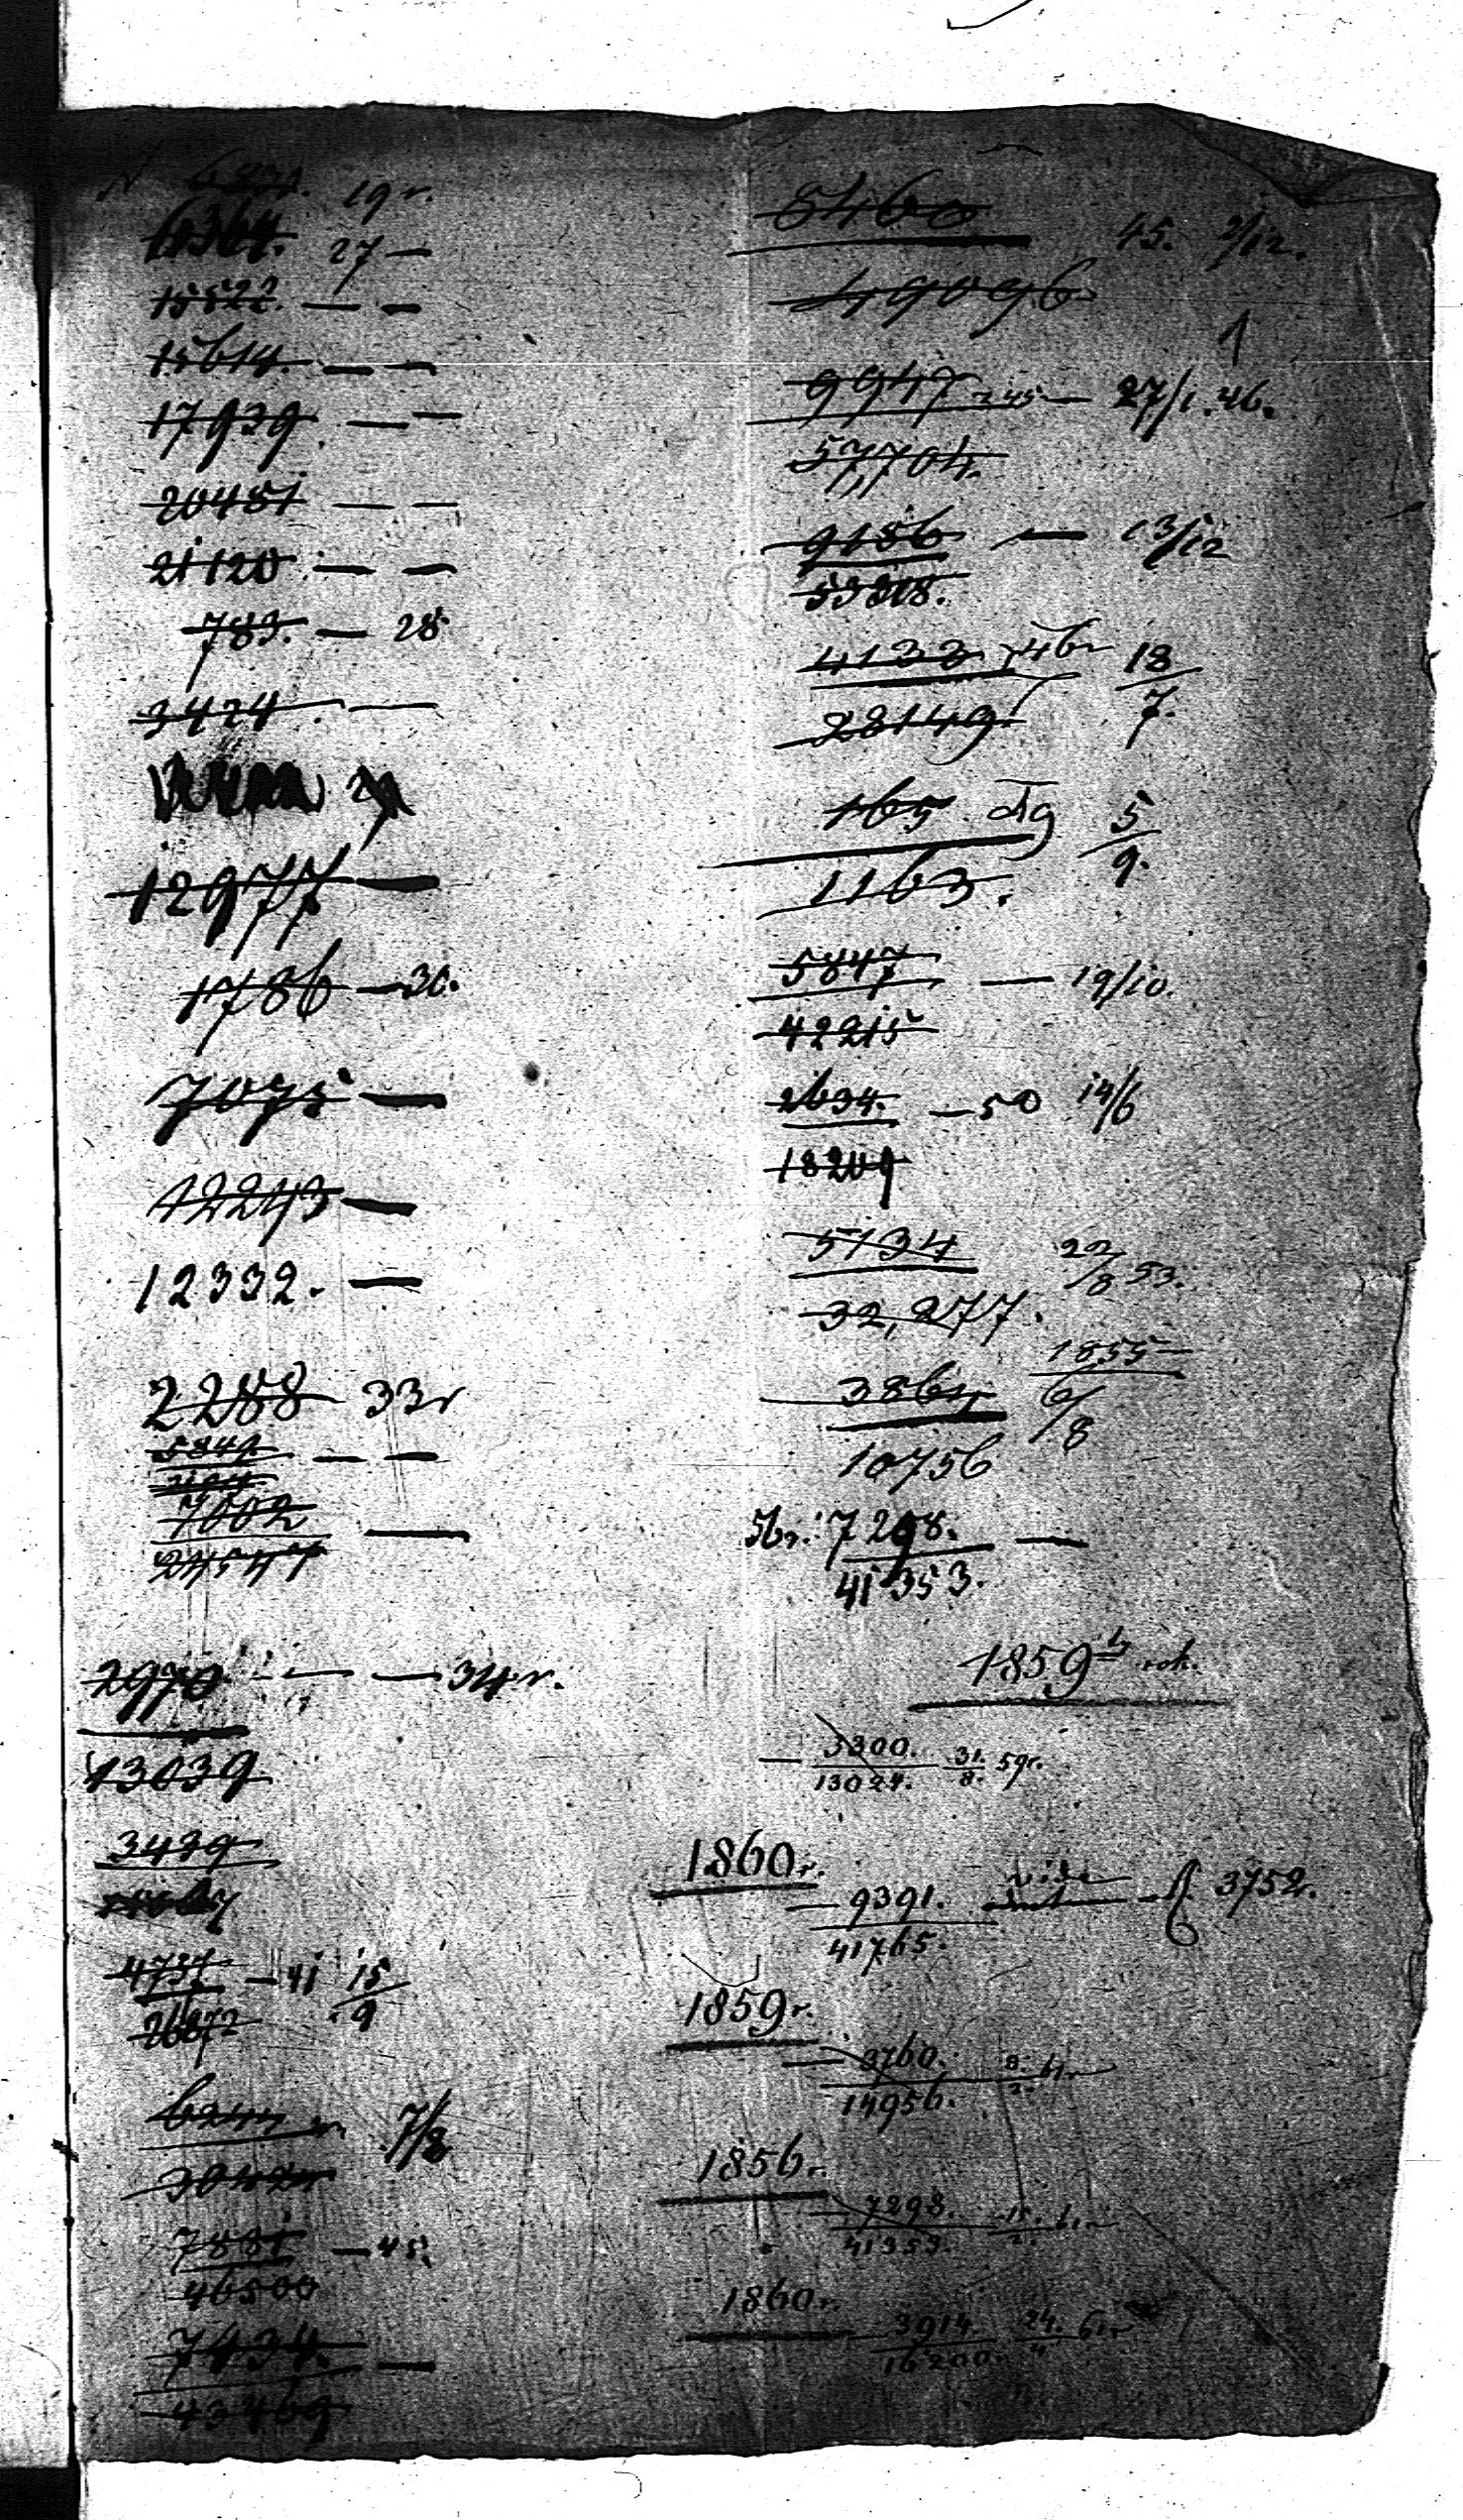 N 19 r.
11364. 27 —
15522. — —
15614. — —
17939. — —
20481 — —
21120. — —
783. — 28
3424. —
12977 —
1786 — 30.
7075 —
12243 —
12332. —
2288 33 r
5849 — —
7002 —
24547
2970 — — 34 r.
13039
3489
4737 — 41 15/9
26872
7/8
7881 — 45.
46500
7434. —
43469
5460 45. 9/12.
49096
1
9947 — 27/1. 46.
57,704.
9186 — 13/12
53308.
4133 46r 18/7.
28149.
165 49 5/9.
1163.
5847 — 19/10.
42215
2634. — 50 14/6
18209
5134 22/8 53.
32,277.
1855
3864 6/8
10756
56r: 7298. —
41353.
1859 rok.
— 3300. 31./8. 59r.
13024.
1860r.
— 9391. vide 3752.
41765.
1859r.
— 3760. 8./2. 61r
14956.
1856r.
— 7298. 15./2. 61r
41353.
1860r.
— 3914. 24./4 61r
16200.